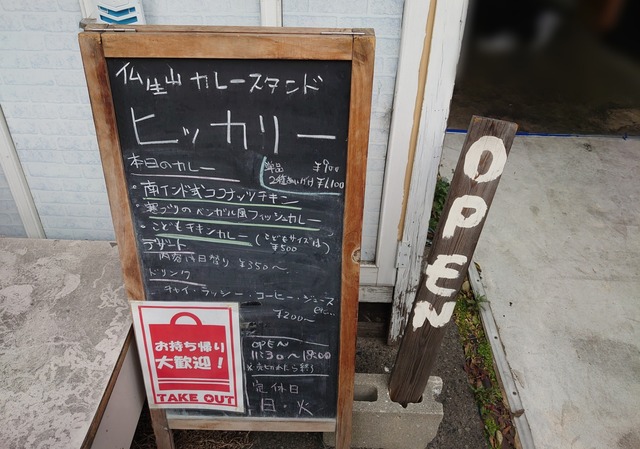 仏生山 カレースタンド
ヒッカリー
本日のカレー
単品 ¥900
2種あいがけ ¥1,100
・南インド式ココナッツチキン
・寒ブリのベンガル風フィッシュカレー
・こどもチキンカレー (こどもサイズは ¥500
デザート
内容は日替り ¥350〜
ドリンク
チャイ・ラッシー・コーヒー・ジュース
etc...
¥200〜
お持ち帰り
大歓迎!
TAKE OUT
OPEN
11:30〜
※売切れたら終り
定休日
日・火
OPEN